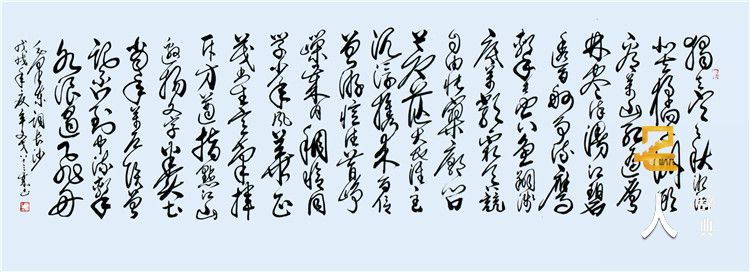 独立寒秋湘江
北去橘子洲头
看万山红遍层
林尽染漫江碧
透百舸争流鹰
击长空鱼翔浅
底万类霜天竞
自由怅寥廓问
苍茫大地谁主
沉浮携来百侣
曾游忆往昔峥
嵘岁月稠恰同
学少年风华正
茂书生意气挥
斥方遒指点江山
激扬文字粪土
当年万户侯曾
记否到中流击
水浪遏飞舟
毛泽东词长沙
戊戌年夏
人
典